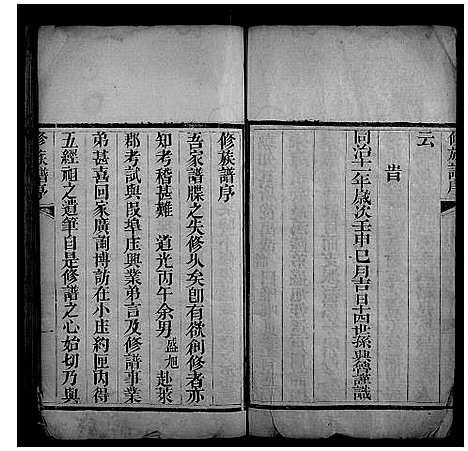 修族譜序
云
旹
同治十一年歲次壬申巳月吉日十四世孫興營謹識
修族譜序
吾家譜牒之失修久矣卽有欲創修者亦
知考稽甚難 道光丙午余男盛旭赴萊
郡考試與段埠庄興業弟言及修譜事業
弟甚嘉回家廣詢博訪在小庄約匣內得
五經祖之遺筆自是修譜之心始切乃與
修族譜序
一